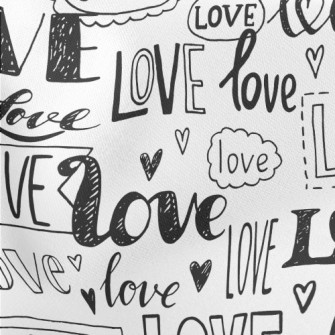 LOVE
LOVE
LOVE
love
love
love
love
love
LOVE
love
LOVE